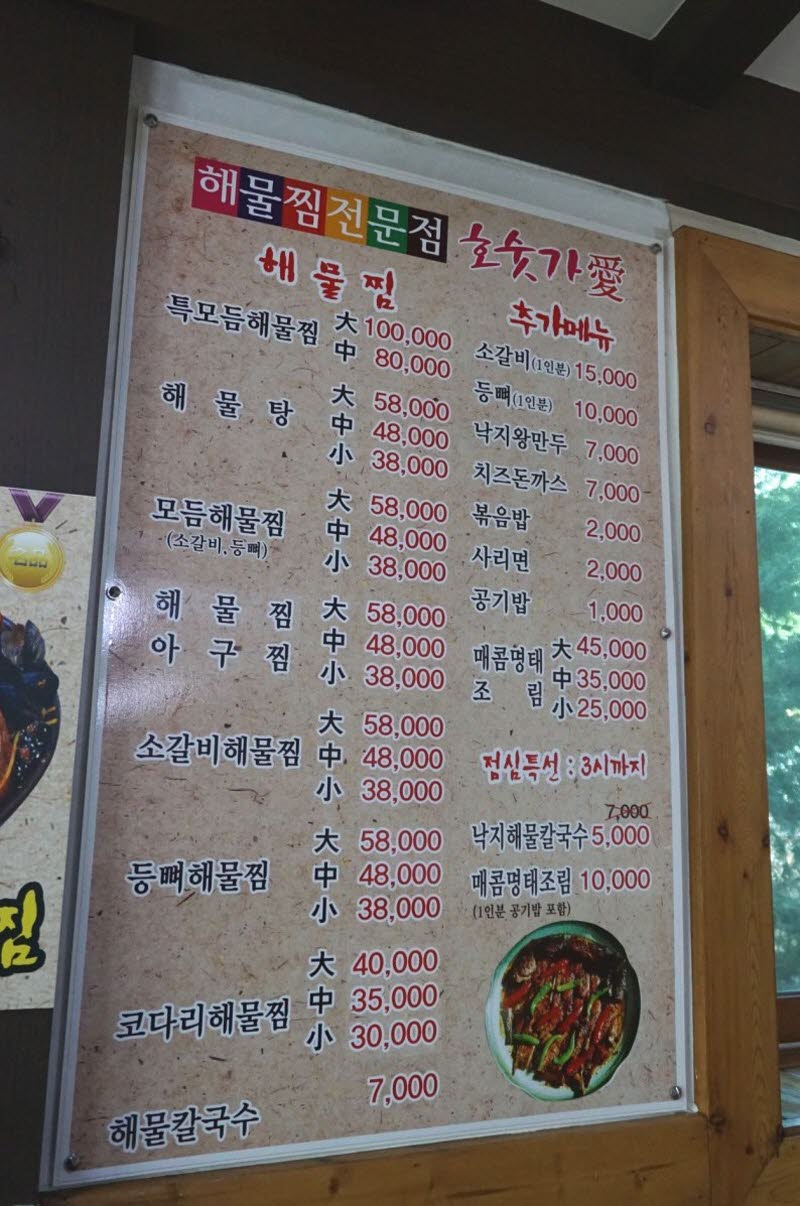 해물찜전문점 호숫가愛
해물찜
특모듬해물찜 大 100,000
中 80,000
해물탕 大 58,000
中 48,000
小 38,000
모듬해물찜 大 58,000
(소갈비,등뼈) 中 48,000
小 38,000
해물찜 大 58,000
아구찜 中 48,000
小 38,000
소갈비해물찜 大 58,000
中 48,000
小 38,000
등뼈해물찜 大 58,000
中 48,000
小 38,000
코다리해물찜 大 40,000
中 35,000
小 30,000
해물칼국수 7,000
추가메뉴
소갈비(1인분) 15,000
등뼈(1인분) 10,000
낙지왕만두 7,000
치즈돈까스 7,000
볶음밥 2,000
사리면 2,000
공기밥 1,000
매콤명태 大 45,000
조림 中 35,000
小 25,000
점심특선 : 3시까지
7,000
낙지해물칼국수 5,000
매콤명태조림 10,000
(1인분 공기밥 포함)
찜